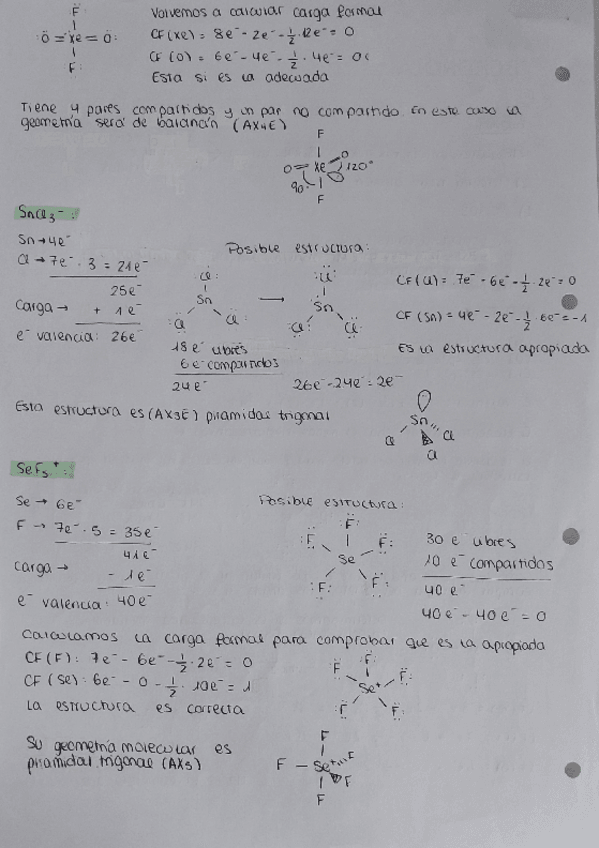 F
Ö = Xe = Ö
F
Volvemos a calcular carga formal
CF(Xe) = 8e⁻ - 2e⁻ - ½ · 12e⁻ = 0
CF(O) = 6e⁻ - 4e⁻ - ½ · 4e⁻ = 0
Esta si es la adecuada
Tiene 4 pares compartidos y un par no compartido. En este caso la
geometría será de balancín (AX4E)
F
O = Xe O 120°
90°
F
SnCl₃⁻:
Sn → 4e⁻
Cl → 7e⁻ · 3 = 21e⁻
25e⁻
Carga → + 1e⁻
e⁻ valencia: 26e⁻
Posible estructura:
Cl
Sn
Cl Cl
→
Cl
Sn
Cl Cl
18e⁻ libres
6e⁻ compartidos
24e⁻
26e⁻ - 24e⁻ = 2e⁻
CF(Cl) = 7e⁻ - 6e⁻ - ½ · 2e⁻ = 0
CF(Sn) = 4e⁻ - 2e⁻ - ½ · 6e⁻ = -1
Es la estructura apropiada
Esta estructura es (AX3E) piramidal trigonal
Sn
Cl Cl
Cl
SeF₅⁺:
Se → 6e⁻
F → 7e⁻ · 5 = 35e⁻
41e⁻
Carga → - 1e⁻
e⁻ valencia: 40e⁻
Posible estructura:
F
F F
Se
F F
30 e⁻ libres
10 e⁻ compartidos
40 e⁻
40e⁻ - 40e⁻ = 0
Calculamos la carga formal para comprobar que es la apropiada
CF(F): 7e⁻ - 6e⁻ - ½ · 2e⁻ = 0
CF(Se): 6e⁻ - 0 - ½ · 10e⁻ = 1
La estructura es correcta
F
F F
Se⁺
F F
Su geometría molecular es
piramidal trigonal (AX5)
F
F - Se⁺ F
F
F